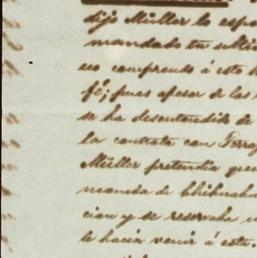 dijo Müller lo espe
mandado tu ulti
eso comprendo á este
fé; pues apesar de las
se ha desentendido de
la contrata con Terra
Müller pretendia que
moneda de Chihuahu
cion y se reservaba
le hacia venir á este.